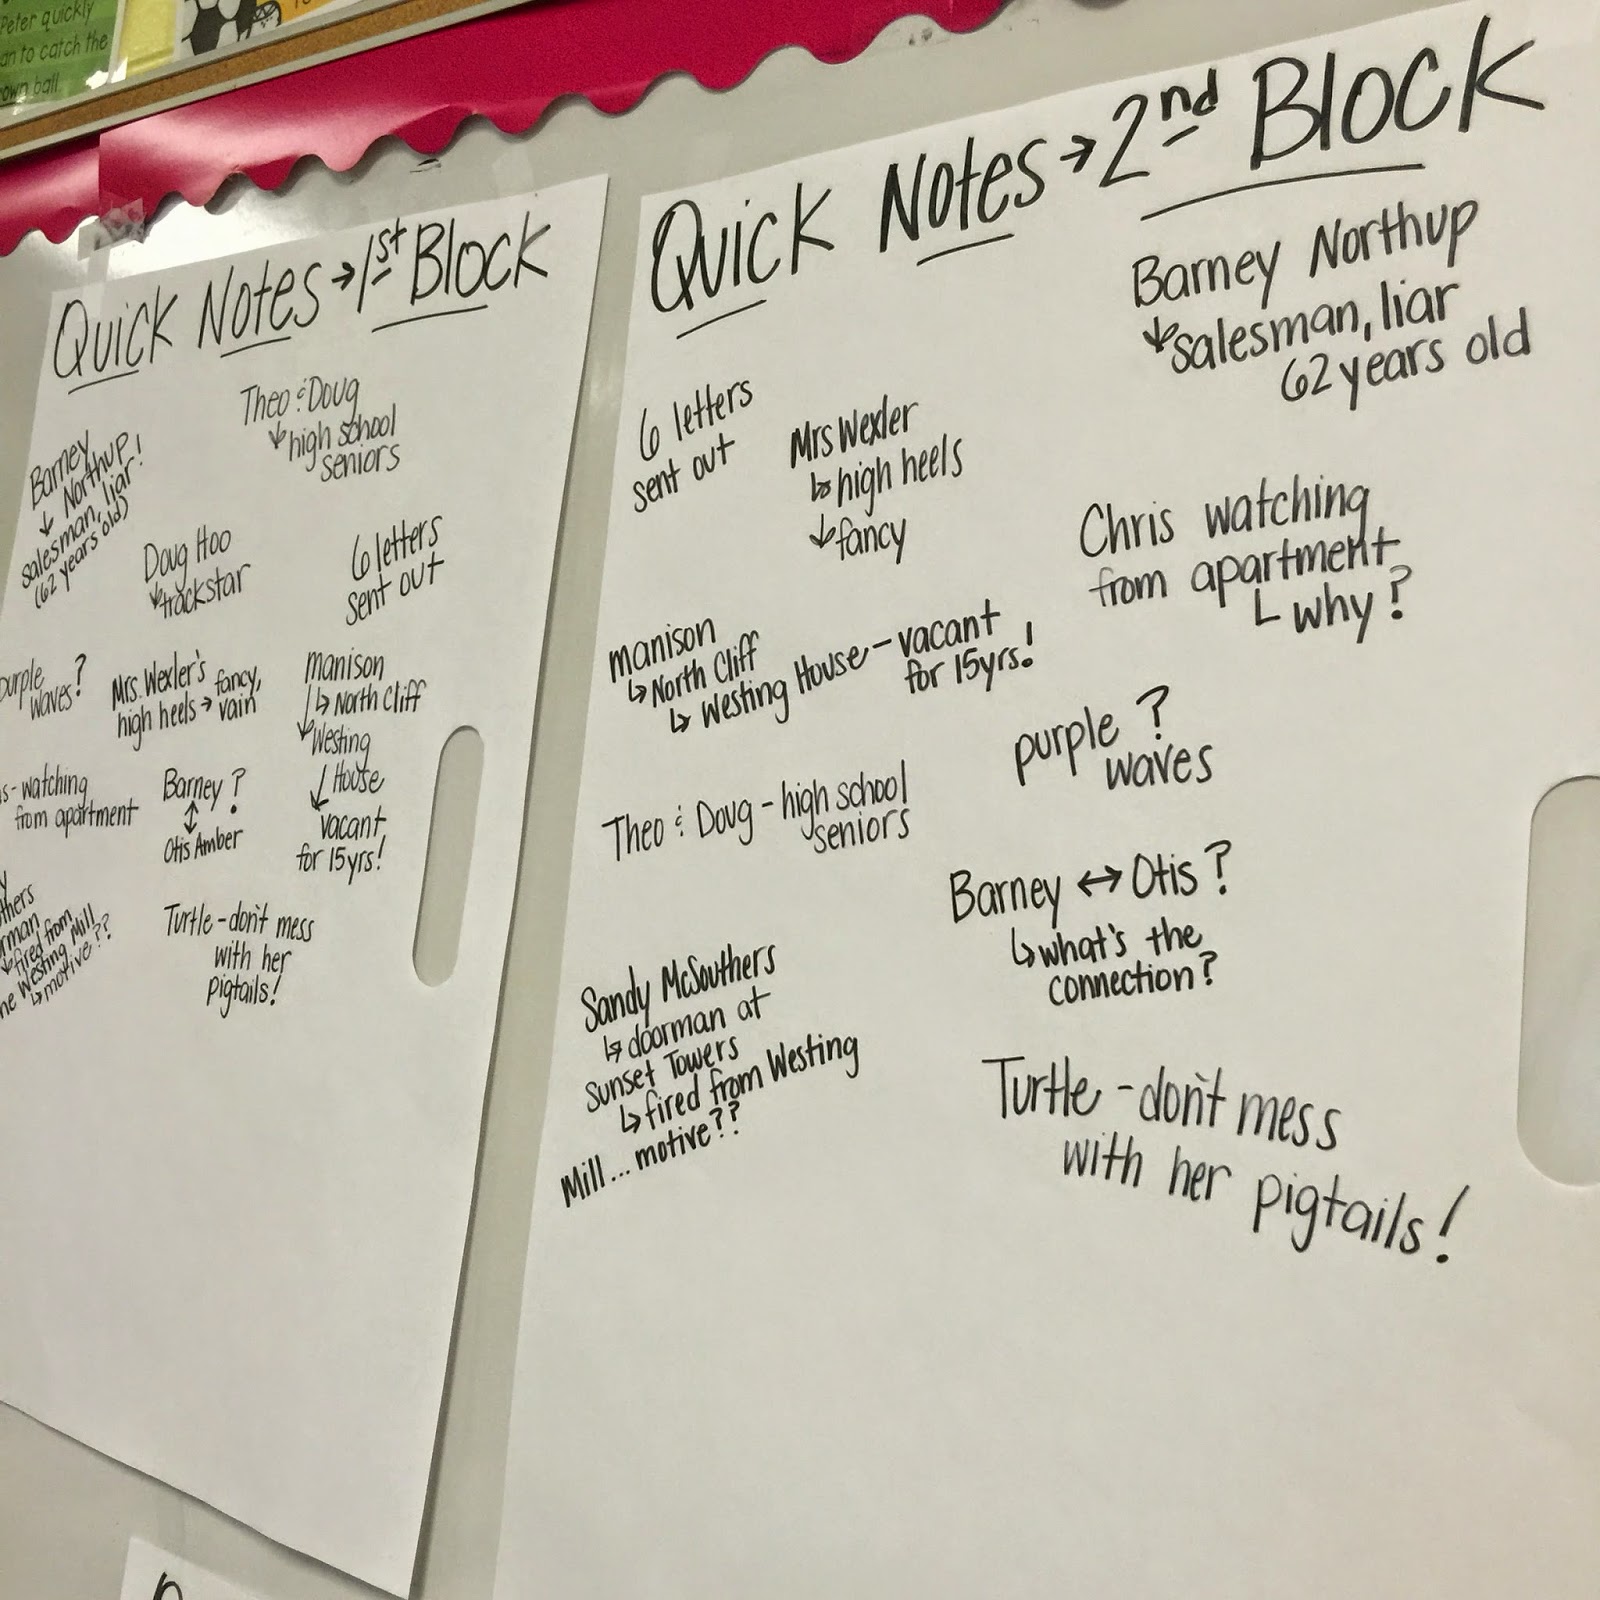 Peter quickly
an to catch the
own ball.
Quick Notes → 1st Block
Theo & Doug
↳ high school
seniors
Barney
↓ Northup
salesman, liar!
(62 years old)
Doug Hoo
↳ trackstar
6 letters
sent out
purple
waves?
Mrs. Wexler's
high heels → fancy,
vain
manison
↳ North Cliff
↓ Westing
↓ House
vacant
for 15yrs!
s - watching
from apartment
Barney?
↕
Otis Amber
y
thers
rman
↓ fired from
he Westing Mill
↳ motive??
Turtle - don't mess
with her
pigtails!
Quick Notes → 2nd Block
Barney Northup
↓ salesman, liar
62 years old
6 letters
sent out
Mrs Wexler
↳ high heels
↓ fancy
Chris watching
from apartment
L why?
manison
↳ North Cliff
↳ Westing House - vacant
for 15yrs!
purple ?
waves
Theo & Doug - high school
seniors
Barney ↔ Otis?
↳ what's the
connection?
Sandy McSouthers
↳ doorman at
Sunset Towers
↳ fired from Westing
Mill... motive??
Turtle - don't mess
with her pigtails!